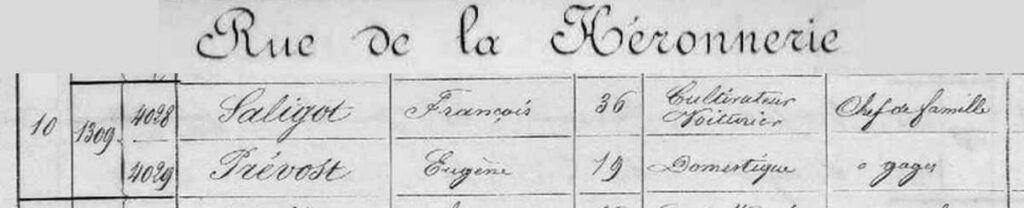 Rue de la Héronnerie
10 1309 4028 Saligot François 36 Cultivateur Voiturier Chef de famille
4029 Prévost Eugène 19 Domestique à gages